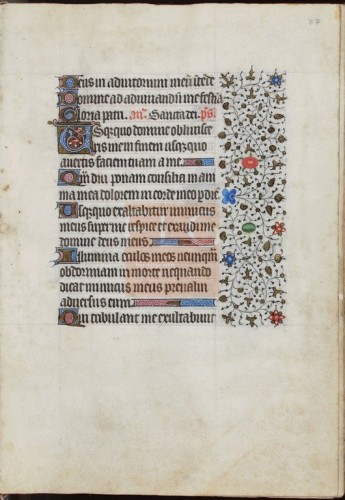 Deus in adiutorium meū intēde
Domine ad adiuuandū me festīa
Gloria patri. añ. Sancta dei. p̄s.
Usquequo domine obliuisce
ris me in finem usquequo
auertis faciem tuam a me
Quādiu ponam consilia in ani
ma mea dolorem in corde meo p̄ die
Usquequo exaltabitur inimicus
meus super me respice et exaudi me
domine deus meus
Illumina oculos meos ne unquā
obdormiam in morte nequando
dicat inimicus meus preualui
aduersus eum
Qui tribulant me exultabunt